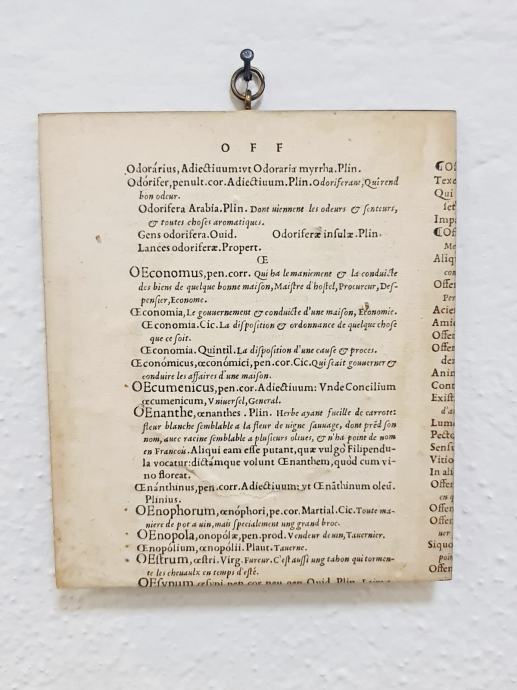 O F F
Odorárius, Adiectiuum: vt Odoraria myrrha. Plin.
Odórifer, penult. cor. Adiectiuum. Plin. Odoriferant, Qui rend
bon odeur.
Odorifera Arabia. Plin. Dont uiennent les odeurs & senteurs,
& toutes choses aromatiques.
Gens odorifera. Ouid. Odoriferæ insulæ. Plin.
Lances odoriferæ. Propert.
Œ
OEconomus, pen. corr. Qui ha le maniement & la conduicte
des biens de quelque bonne maison, Maistre d'hostel, Procureur, Des-
pensier, Econome.
Œconomia, Le gouuernement & conduicte d'une maison, Economie.
Œconomia. Cic. La disposition & ordonnance de quelque chose
que ce soit.
Œconomia. Quintil. La disposition d'une cause & proces.
Œconómicus, œconómici, pen. cor. Cic. Qui sçait gouuerner &
conduire les affaires d'une maison.
OEcumenicus, pen. cor. Adiectiuum: Vnde Concilium
œcumenicum, Vniuersel, General.
OEnanthe, œnanthes. Plin. Herbe ayant fueille de carrote:
fleur blanche semblable a la fleur de uigne sauuage, dont prēd son
nom, auec racine semblable a plusieurs oliues, & n'ha point de nom
en Francois. Aliqui eam esse putant, quæ vulgo Filipendu-
la vocatur: dictámque volunt Œnanthem, quòd cum vi-
no floreat.
Œnánthinus, pen. corr. Adiectiuum: vt Œnāthinum oleū.
Plinius.
OEnophorum, œnóphori, pe. cor. Martial. Cic. Toute ma-
niere de pot a uin, mais specialement ung grand broc.
OEnopola, œnopólæ, pen. prod. Vendeur de uin, Tauernier.
Œnopólium, œnopólii. Plaut. Tauerne.
OEstrum, œstri. Virg. Fureur. C'est aussi ung tahon qui tormen-
te les cheuaulx en temps d'esté.
OEsypum œsypi pen cor Ouid. Plin.
Texe
Qui
Impo
Aliq
con
Offen
Per
Acie
Amie
Offen
Offen
dez
Anin
Cont
Exist
d'a
Lum
Pecto
Sensu
Vitio
In ali
Offen
en q
Offen
Offen
uer
Siquo
poin
Offen